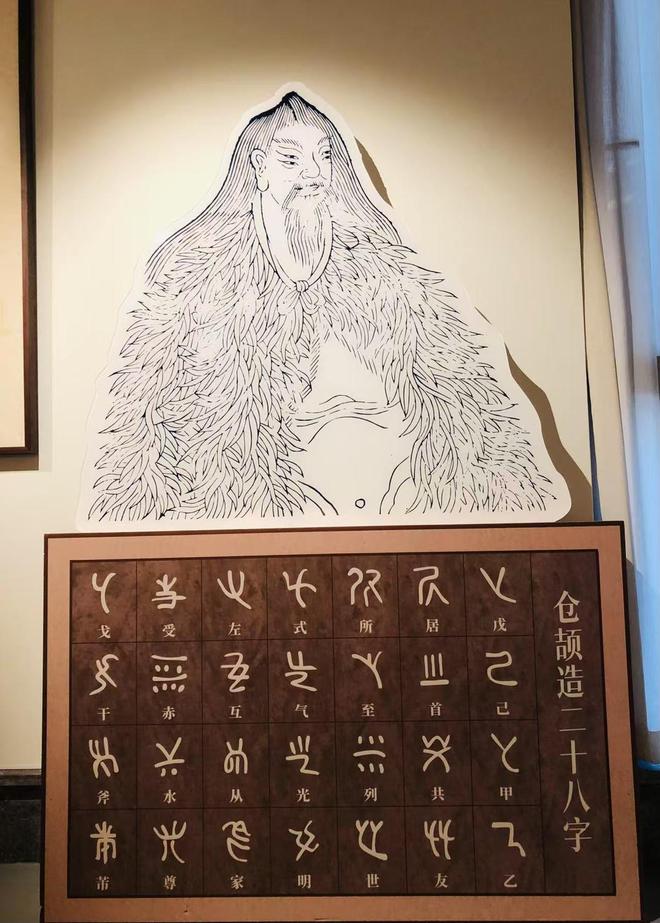 仓颉造二十八字
戊己甲乙
居首共友
所至列世
式气光明
左互从家
受赤水尊
戈干斧芾